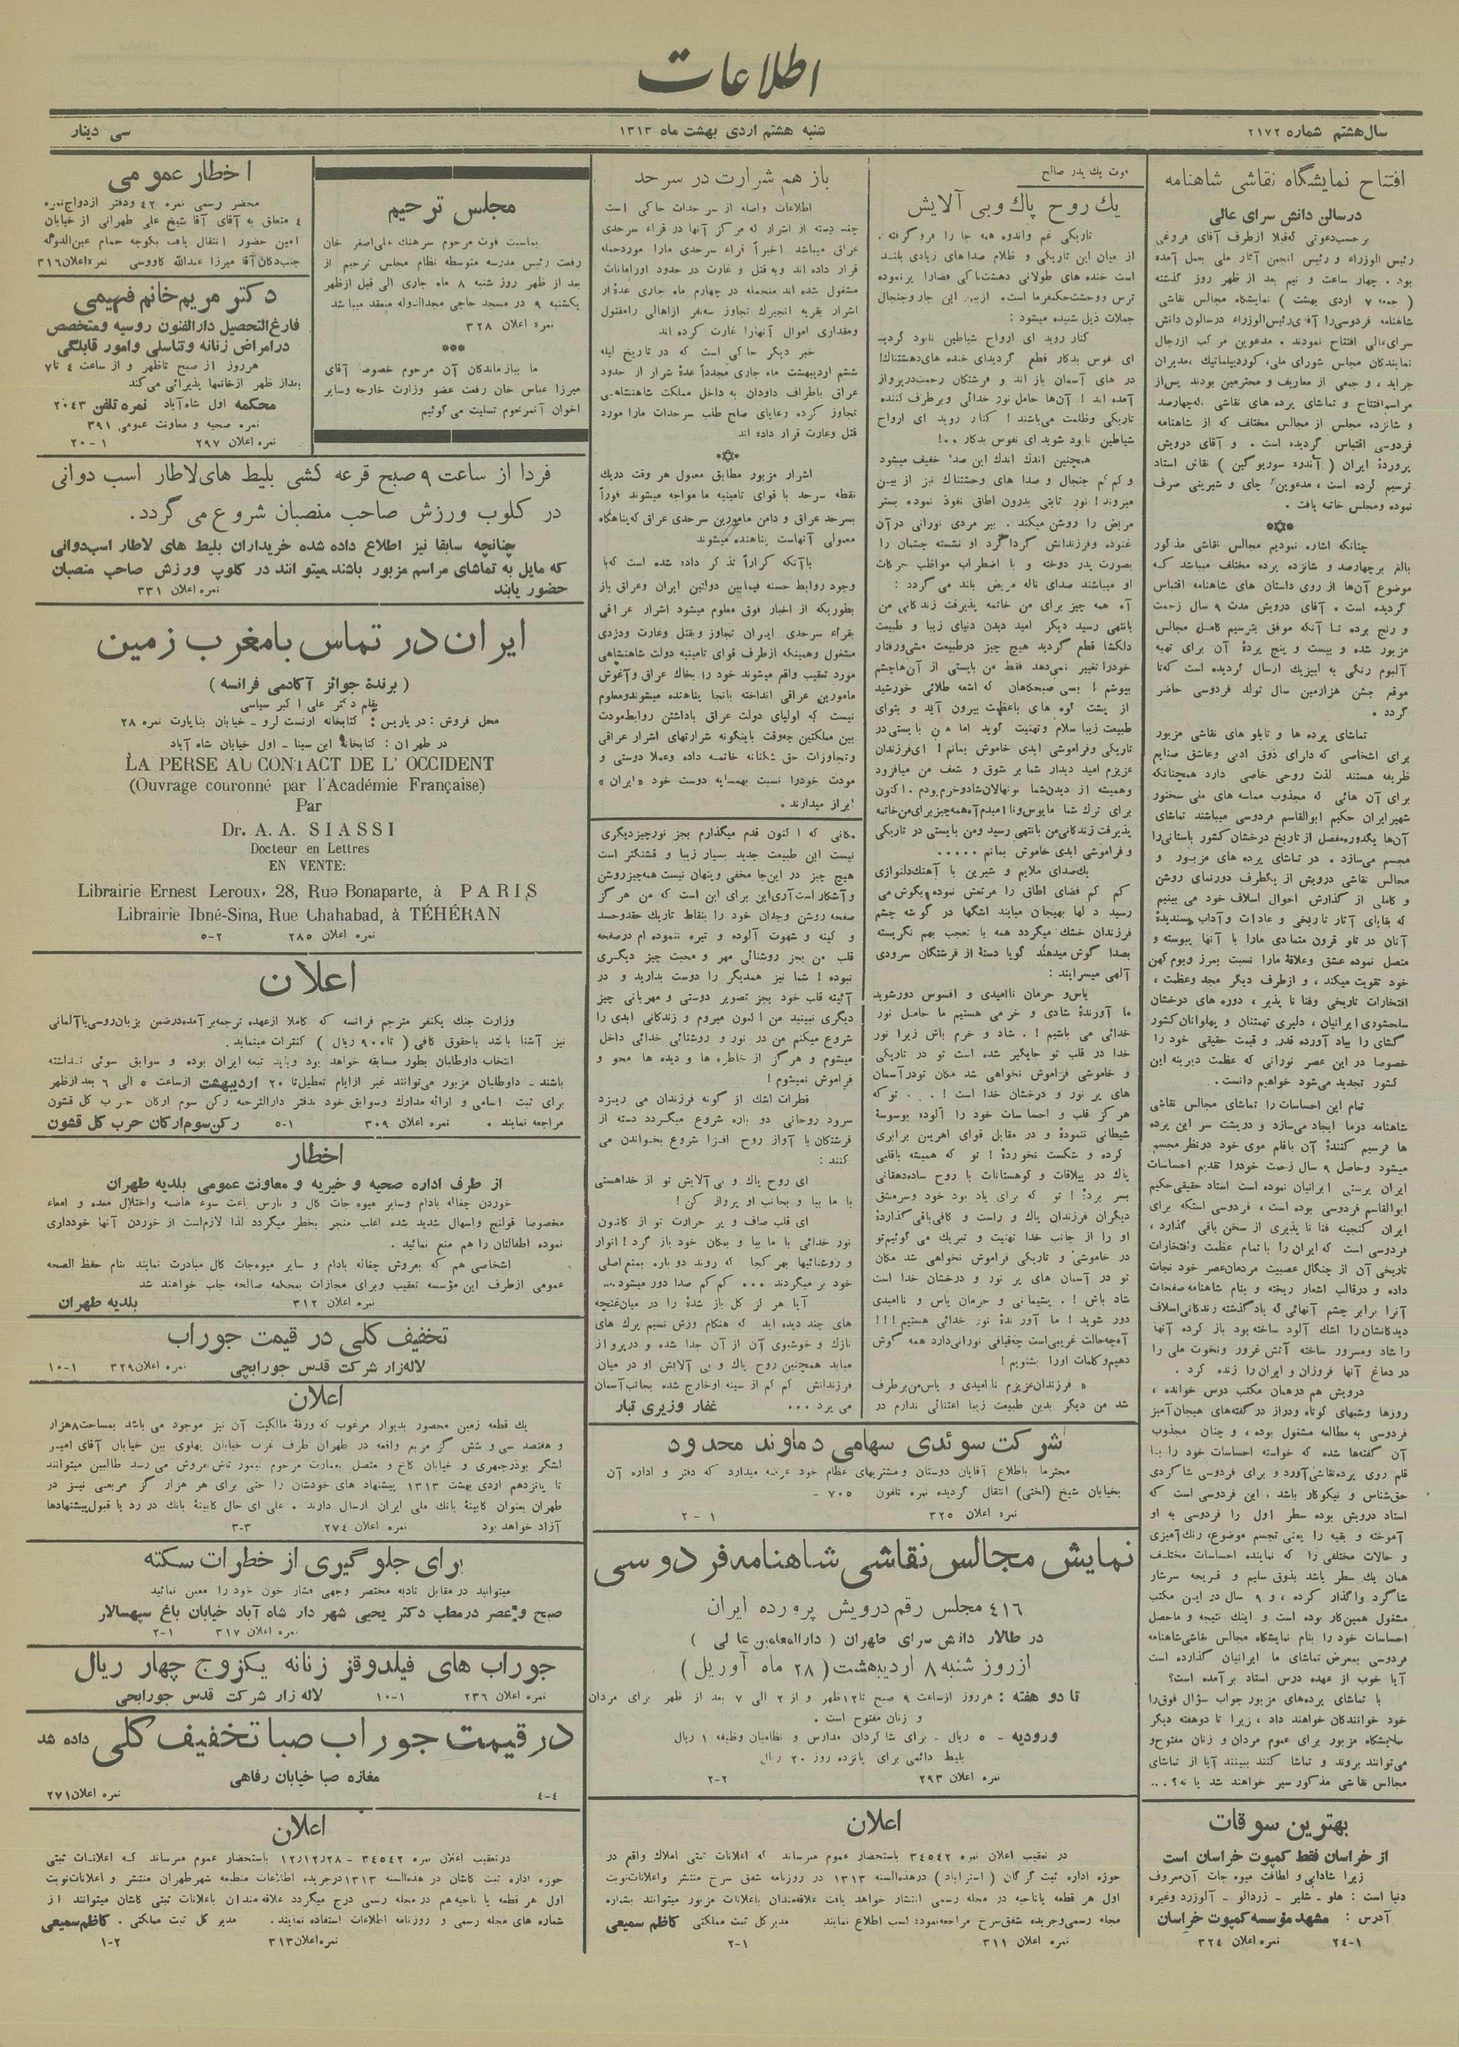 اطلاعات
سال هشتم شماره ۲۱۷۲
شنبه هشتم اردی بهشت ماه ۱۳۱۳
سی دینار
افتتاح نمایشگاه نقاشی شاهنامه
درسالن دانش سرای عالی
برحسب دعوتی که قبلا ازطرف آقای فروغی
رئیس الوزراء و رئیس انجمن آثار ملی بعمل آمده
بود. چهار ساعت و نیم بعد از ظهر روز گذشته
( جمعه ۷ اردی بهشت ) نمایشگاه مجالس نقاشی
شاهنامه فردوسی را آقای رئیس الوزراء درسالون دانش
سرای عالی افتتاح نمودند. مدعوین مرکب ازرجال
نمایندگان مجلس شورای ملی، کوردیپلماتیك، مدیران
جراید، و جمعی از معاریف و محترمین بودند پس از
مراسم افتتاح و تماشای پرده های نقاشی که چهارصد
و شانزده مجلس از مجالس مختلف که از شاهنامه
فردوسی اقتباس گردیده است. و آقای درویش
پروردهٔ ایران ( آندره سوریوگین ) نقاش استاد
ترسیم کرده است، مدعوین چای و شیرینی صرف
نموده ومجلس خاتمه یافت.
چنانکه اشاره نمودیم مجالس نقاشی مذکور
بالغ برچهارصد و شانزده پرده مختلف میباشد که
موضوع آن‌ها از روی داستان های شاهنامه اقتباس
گردیده است. آقای درویش مدت ۹ سال زحمت
و رنج برده تا آنکه موفق بترسیم کامل مجالس
مزبور شده و بیست و پنج پردهٔ آن برای تهیه
آلبوم رنگی به لیپزیك ارسال گردیده است که تا
موقع جشن هزارمین سال تولد فردوسی حاضر
گردد.
تماشای پرده ها و تابلو های نقاشی مزبور
برای اشخاصی که دارای ذوق ادبی وعاشق صنایع
ظریفه هستند لذت روحی خاصی دارد همچنانکه
برای آن هائی که مجذوب حماسه های ملی سخنور
شهیر ایران حکیم ابوالقاسم فردوسی میباشند تماشای
آن‌ها یکدوره مفصل از تاریخ درخشان کشور باستانی را
مجسم می‌سازد. در تماشای پرده های مزبور و
مجالس نقاشی درویش از یکطرف دورنمای روشن
و کاملی از گذارش احوال اسلاف خود می بینیم
که بقایای آثار تاریخی و عادات وآداب پسندیدهٔ
آنان در تلو قرون متمادی مارا با آنها پیوسته و
متصل نموده عشق وعلاقهٔ مارا نسبت بمرز وبوم کهن
خود تقویت میکند، و ازطرف دیگر مجد وعظمت،
افتخارات تاریخی وفنا نا پذیر، دوره های درخشان
سلحشوری ایرانیان، دلیری تهمتنان و پهلوانان کشور
گشای را بیاد آورده قدر و قیمت حقیقی خود را
خصوصا در این عصر نورانی که عظمت دیرینه این
کشور تجدید می‌شود خواهیم دانست.
تمام این احساسات را تماشای مجالس نقاشی
شاهنامه درما ایجاد می‌سازد و درپشت سر این پرده
ها ترسیم کنندهٔ آن باقلم موی خود درنظر مجسم
میشود وحاصل ۹ سال زحمت خودرا تقدیم احساسات
ایران پرستی ایرانیان نموده است استاد حقیقی حکیم
ابوالقاسم فردوسی بوده است، فردوسی استکه برای
ایران گنجینه فنا نا پذیری از سخن باقی گذارد،
فردوسی است که ایران را با تمام عظمت وافتخارات
تاریخی آن از چنگال عصبیت مردمان عصر خود نجات
داده و درقالب اشعار ریخته و بنام شاهنامه صفحات
آنرا برابر چشم آنهائی که یاد گذشته زندگانی اسلاف
دیدگانشان را اشك آلود ساخته بود باز کرده آنها
را شاد ومسرور ساخته آتش غرور ونخوت ملی را
در دماغ آنها فروزان و ایران را زنده کرد.
درویش هم درهمان مکتب درس خوانده،
روزها وشبهای کوتاه ودراز در گفته‌های هیجان آمیز
فردوسی به مطالعه مشغول بوده، و چنان مجذوب
آن گفته‌ها شده که خواسته احساسات خود را با
قلم روی پرده نقاشی آورد و برای فردوسی شاگردی
حق‌شناس و نیکوکار باشد. این فردوسی است که
استاد درویش بوده سطر اول را فردوسی به او
آموخته و بقیه را یعنی تجسم موضوع، رنگ آمیزی
و حالات مختلفی را که نماینده احساسات مختلف
همان یك سطر باشد بذوق سلیم و قریحه سرشار
شاگرد واگذار کرده، و ۹ سال در این مکتب
مشغول همین کار بوده است و اینك نتیجه و ماحصل
احساسات خود را بنام نمایشگاه مجالس نقاشی شاهنامه
فردوسی بمعرض تماشای ما ایرانیان گذارده است
آیا خوب از عهده درس استاد برآمده است؟
با تماشای پرده‌های مزبور جواب سؤال فوق را
خود خوانندگان خواهند داد، زیرا تا دوهفته دیگر
نمایشگاه مزبور برای عموم مردان و زنان مفتوح و
می‌توانند بروند و تماشا کنند ببینند آیا از تماشای
مجالس نقاشی مذکور سیر خواهند شد یا نه؟...
بهترین سوقات
از خراسان فقط کمپوت خراسان است
زیرا شادابی و لطافت میوه جات آن معروف
دنیا است: هلو - شلیر - زردآلو - آلوزرد وغیره
آدرس: مشهد مؤسسه کمپوت خراسان
۲۴-۱ نمره اعلان ۳۲۴
فوت یك پدر صالح
یك روح پاك وبی آلایش
تاریکی غم واندوه همه جا را فروگرفته.
از میان این تاریکی و ظلام صداهای زیادی بلند
است خنده های طولانی دهشتناکی فضارا پرنموده
ترس ووحشت حکمفرما است. ازبین این جاروجنجال
جملات ذیل شنیده میشود:
کنار روید ای ارواح شیاطین نابود گردید
ای نفوس بدکار قطع گردید ای خنده های دهشتناك!
در های آسمان باز اند و فرشتگان رحمت درپرواز
آمده اند! آن‌ها حامل نور خدائی وبرطرف کننده
تاریکی وظلمت می‌باشند! کنار روید ای ارواح
شیاطین نابود شوید ای نفوس بدکار..!
همچنین اندك اندك این صدا خفیف میشود
و کم کم جنجال و صدا های وحشتناك نیز از بین
میروند! نور تابتی بدرون اطاق نفوذ نموده بستر
مریض را روشن میکند. پیر مردی نورانی درآن
غنوده وفرزندانش گرداگرد او نشسته چشمان را
بصورت پدر دوخته و با اضطراب مواظب حرکات
او میباشند صدای ناله مریض بلند می گردد:
آه همه چیز برای من خاتمه پذیرفت زندگانی من
بانتهی رسید دیگر امید دیدن دنیای زیبا و طبیعت
دلکشا قطع گردید هیچ چیز درطبیعت مشی ورفتار
خودرا تغییر نمی‌دهد فقط من بایستی از آن‌هاچشم
بپوشم! بسی صبحگاهان که اشعه طلائی خورشید
از پشت کوه های باعظمت بیرون آید و بتوای
طبیعت زیبا سلام وتهنیت گوید اما من بایستی در
تاریکی وفراموشی ابدی خاموش بمانم! ای‌فرزندان
عزیزم امید دیدار شما بر شوق و شعف من میافزود
وهمیشه از دیدن‌شما نونهالان‌شادوخرم‌بودم. اکنون
برای ترك شما مایوس وناامیدم آه‌همه‌چیز برای‌من‌خاتمه
پذیرفت زندگانی‌من بانتهی رسید ومن بایستی در تاریکی
وفراموشی ابدی خاموش بمانم.....
یك‌صدای ملایم و شیرین با آهنك دلنوازی
کم کم فضای اطاق را مرتعش نموده بگوش می
رسید دلها بهیجان میایند اشکها در گوشه چشم
فرزندان خشك میگردد همه با تعجب بهم نگریسته
بصدا گوش میدهند گویا دستهٔ از فرشتگان سرودی
آلهی میسرایند:
یاس و حرمان ناامیدی و افسوس دورشوید
ما آورندهٔ شادی و خرمی هستیم ما حامل نور
خدائی می باشیم!. شاد و خرم باش زیرا نور
خدا در قلب تو جایگیر شده است تو در تاریکی
و خاموشی فراموش نخواهی شد مکان تودرآسمان
های پر نور و درخشان خدا است!... توکه
هرگز قلب و احساسات خود را آلوده بوسوسهٔ
شیطانی ننمودهٔ و در مقابل قوای اهریمن برابری
کرده و شکست نخوردهٔ! تو که همیشه باقلبی
پاك در ییلاقات و کوهستانات با روح ساده‌دهقانی
بسر بردهٔ! تو که برای یاد بود خود وسرمشق
دیگران فرزندان پاك و راست و کافی‌باقی‌گذاردهٔ
او را از جانب خدا تهنیت و تبریك می گوئیم‌تو
در خاموشی و تاریکی فراموش نخواهی شد مکان
تو در آسمان های پر نور و درخشان خدا است
شاد باش!. پشیمانی و حرمان یاس و ناامیدی
دور شوید! ما آورندهٔ نور خدائی هستیم!!!
آه‌چه‌حالت غریبی‌است چه‌قیافی نورانی‌دارد همه گوش
دهیم‌وکلمات اورا بشنویم!
« فرزندان‌عزیزم ناامیدی و یاس‌من‌برطرف
شد من دیگر بدین طبیعت زیبا اعتنائی ندارم در
باز هم شرارت در سرحد
اطلاعات واصله از سرحدات حاکی است
چند دسته از اشرار که مرکز آنها در قراء سرحدی
عراق میباشد اخیراً قراء سرحدی مارا موردحمله
قرار داده اند وبه قتل و غارت در حدود اورامانات
مشغول شده اند منجمله در چهارم ماه جاری عدهٔ از
اشرار بقریه انجیرك تجاوز سه‌نفر ازاهالی رامقتول
ومقداری اموال آنهارا غارت کرده اند
خبر دیگر حاکی است که در تاریخ لیله
ششم اردیبهشت ماه جاری مجدداً عدهٔ شرار از حدود
عراق باطراف داودان به داخل مملکت شاهنشاهی
تجاوز کرده رعایای صلح طلب سرحدات مارا مورد
قتل وغارت قرار داده اند
اشرار مزبور مطابق معمول هر وقت دریك
نقطه سرحد با قوای تامینیه ما مواجه میشوند فوراً
بسرحد عراق و دامن مامورین سرحدی عراق که پناهگاه
معمولی آنهاست پناهنده میشوند
باآنکه کراراً تذکر داده شده است که‌با
وجود روابط حسنه فیمابین دولتین ایران وعراق باز
بطوریکه از اخبار فوق معلوم میشود اشرار عراقی
بقراء سرحدی ایران تجاوز وبقتل وغارت ودزدی
مشغول وهمینکه ازطرف قوای تامینیه دولت شاهنشاهی
مورد تعقیب واقع میشوند خود را بخاك عراق وآغوش
مامورین عراقی انداخته بانجا پناهنده میشوندومعلوم
نیست که اولیای دولت عراق باداشتن روابط‌مودت
بین مملکتین چه‌وقت باینگونه شرارتهای اشرار عراقی
وتجاوزات حق شکنانه خاتمه داده وعملا دوستی و
مودت خودرا نسبت بهمسایه دوست خود «ایران»
ابراز میدارند.
مکانی که اکنون قدم میگذارم بجز نورچیزدیگری
نیست این طبیعت جدید بسیار زیبا و قشنگتر است
هیچ چیز در این‌جا مخفی وپنهان نیست همه‌چیزروشن
وآشکار است‌آری‌این برای این است که من هرگز
صفحه روشن وجدان خود را بنقاط تاریك حقدوحسد
و کینه و شهوت آلوده و تیره ننموده ام درصفحه
قلب من بجز روشنائی مهر و محبت چیز دیگری
نبوده! شما نیز همدیگر را دوست بدارید و در
آئینه قلب خود بجز تصویر دوستی و مهربانی چیز
دیگری نبینید من اکنون میروم و زندگانی ابدی را
شروع میکنم من در نور و روشنائی خدائی داخل
میشوم و هرگز از خاطره ها و دیده ها محو و
فراموش نمیشوم!
قطرات اشك از گونه فرزندان می ریزد
سرود روحانی دو باره شروع میگردد دسته از
فرشتگان با آواز روح افزا شروع بخواندن می
کنند:
ای روح پاك و بی‌آلایش تو از خداهستی
با ما بیا و بجانب او پرواز کن!
ای قلب صاف و پر حرارت تو از کانون
نور خدائی با ما بیا و بمکان خود باز گرد! انوار
و روشنائیها بهر کجا که روند دوباره بمنبع اصلی
خود بر میگردند... کم کم صدا دور میشود...
آیا هرگز گل باز شدهٔ را در میان‌غنچه
های چند دیده اید که هنگام وزش نسیم برك های
نازك و خوشبوی آن از آن جدا شده و درپرواز
میاید همچنین روح پاك و بی آلایش او در میان
فرزندانش کم کم از سینه اوخارج شده بجانب‌آسمان
می پرد... غفار وزیری تبار
شرکت سوئدی سهامی دماوند محدود
محترما باطلاع آقایان دوستان ومشتریهای عظام خود عرضه میدارد که دفتر و اداره آن
بخیابان شیخ (لختی) انتقال گردیده نمره تلفون ۷۰۵ -
نمره اعلان ۳۲۵ ۱-۲
نمایش مجالس نقاشی شاهنامه فردوسی
۴۱۶ مجلس رقم درویش پرورده ایران
در طالار دانش سرای طهران ( دارالمعلمین عالی )
از روز شنبه ۸ اردیبهشت ( ۲۸ ماه آوریل )
تا دو هفته: هر روز ازساعت ۹ صبح تا۱۲ظهر و از ۲ الی ۷ بعد از ظهر برای مردان
و زنان مفتوح است.
ورودیه - ۵ ریال - برای شاگردان مدارس و نظامیان وظیفه ۱ ریال
بلیط دائمی برای پانزده روز ۲۰ ریال
نمره اعلان ۲۹۳ ۲-۲
اعلان
در تعقیب اعلان نمره ۳۴۵۴۲ باستحضار عموم میرساند که اعلانات ثبتی املاك واقع در
حوزه اداره ثبت گرگان (استراباد) در هذه‌السنه ۱۳۱۳ در روزنامه شفق سرخ منتشر واعلانات‌نوبت
اول هر قطعه یاناحیه در مجله رسمی انتشار خواهد یافت علاقه‌مندان باعلانات مزبور میتوانند بشماره
مجله رسمی‌وجریده شفق‌سرخ مراجعه‌نموده کسب اطلاع نمایند مدیرکل ثبت مملکتی کاظم سمیعی
نمره اعلان ۳۱۱ ۲-۱
مجلس ترحیم
بمناسبت فوت مرحوم سرهنك علی‌اصغر خان
رفعت رئیس مدرسه متوسطه نظام مجلس ترحیم از
بعد از ظهر روز شنبه ۸ ماه جاری الی قبل ازظهر
یکشنبه ۹ در مسجد حاجی مجدالدوله منعقد میباشد
نمره اعلان ۳۲۸
ما ببازماندگان آن مرحوم خصوصاً آقای
میرزا عباس خان رفعت عضو وزارت خارجه وسایر
اخوان آنمرحوم تسلیت می گوئیم
اخطار عمومی
محضر رسمی نمره ۴۲ ودفتر ازدواج‌نمره
۴ متعلق به آقای آقا شیخ علی طهرانی از خیابان
امین حضور انتقال یافت بکوچه حمام عین‌الدوله
جنب‌دکان‌آقا میرزا عبدالله کاووسی نمره‌اعلان۳۱۶
دکتر مریم خانم فهیمی
فارغ‌التحصیل دارالفنون روسیه ومتخصص
درامراض زنانه وتناسلی وامور قابلگی
هرروز از صبح تاظهر و از ساعت ۴ تا۷
بعداز ظهر ازخانمها پذیرائی می‌کند
محکمه اول شاه‌آباد نمره تلفن ۲۰۴۳
نمره صحیه و معاونت عمومی ۳۹۱
نمره اعلان ۲۹۷ ۲۰-۱
فردا از ساعت ۹ صبح قرعه کشی بلیط های لاطار اسب دوانی
در کلوب ورزش صاحب منصبان شروع می گردد.
چنانچه سابقا نیز اطلاع داده شده خریداران بلیط های لاطار اسب‌دوانی
که مایل به تماشای مراسم مزبور باشند میتوانند در کلوپ ورزش صاحب منصبان
حضور یابند نمره اعلان ۳۳۱
ایران در تماس با مغرب زمین
( برندهٔ جوائز آکادمی فرانسه )
بقلم دکتر علی اکبر سیاسی
محل فروش: در پاریس: کتابخانه ارنست لرو - خیابان بناپارت نمره ۲۸
در طهران: کتابخانه ابن سینا - اول خیابان شاه آباد
LA PERSE AU CONTACT DE L' OCCIDENT
(Ouvrage couronné par l'Académie Française)
Par
Dr. A. A. SIASSI
Docteur en Lettres
EN VENTE:
Librairie Ernest Leroux, 28, Rue Bonaparte, à PARIS
Librairie Ibné-Sina, Rue Chahabad, à TÉHÉRAN
نمره اعلان ۲۸۵ ۵-۲
اعلان
وزارت جنك یکنفر مترجم فرانسه که کاملا ازعهده ترجمه‌برآمده‌درضمن بزبان‌روسی‌یاآلمانی
نیز آشنا باشد باحقوق کافی (تا۹۰۰ ریال) کنترات مینماید.
انتخاب داوطلبان بطور مسابقه خواهد بود وباید تبعه ایران بوده و سوابق سوئی نداشته
باشند - داوطلبان مزبور می‌توانند غیر ازایام تعطیل‌تا ۲۰ اردیبهشت ازساعت ۵ الی ۶ بعد ازظهر
برای ثبت اسامی و ارائه مدارك وسوابق خود بدفتر دارالترجمه رکن سوم ارکان حرب کل قشون
مراجعه نمایند. نمره اعلان ۳۰۹ ۵-۱ رکن سوم ارکان حرب کل قشون
اخطار
از طرف اداره صحیه و خیریه و معاونت عمومی بلدیه طهران
خوردن چغاله بادام وسایر میوه جات کال و نارس باعث سوء هاضمه واختلال معده و امعاء
مخصوصا قولنج واسهال شدید شده اغلب منجر بخطر میگردد لذا لازم‌است از خوردن آنها خودداری
نموده اطفالتان را هم منع نمائید.
اشخاصی هم که بفروش چغاله بادام و سایر میوه‌جات کال مبادرت نمایند بنام حفظ الصحه
عمومی ازطرف این مؤسسه تعقیب وبرای مجازات بمحکمه صالحه جلب خواهند شد
نمره اعلان ۳۱۲ بلدیه طهران
تخفیف کلی در قیمت جوراب
لاله‌زار شرکت قدس جورابچی نمره اعلان ۳۲۹ ۱۰-۱
اعلان
یك قطعه زمین محصور بدیوار مرغوب که ورقهٔ مالکیت آن نیز موجود می باشد بمساحت‌۸هزار
و هفتصد سی و شش گز مربع واقعه در طهران طرف غرب خیابان پهلوی بین خیابان آقای امیر
لشگر بوذرجمهری و خیابان کاخ و متصل بعمارت مرحوم تیمور تاش بفروش می رسد طالبین میتوانند
تا پانزدهم اردی بهشت ۱۳۱۳ پیشنهاد های خودشان را حتی برای هر هزار گز مربعی نیز در
طهران بعنوان کابینهٔ بانك ملی ایران ارسال دارند. علی ای حال کابینهٔ بانك در رد یا قبول‌پیشنهادها
آزاد خواهد بود نمره اعلان ۲۷۴ ۳-۳
برای جلوگیری از خطرات سکته
میتوانید در مقابل تادیه مختصر وجهی فشار خون خود را معین نمائید
صبح و عصر در مطب دکتر یحیی شهردار شاه آباد خیابان باغ سپهسالار
نمره اعلان ۳۱۷ ۲-۱
جوراب های فیلدوقز زنانه یکزوج چهار ریال
نمره اعلان ۲۳۶ ۱۰-۱ لاله زار شرکت قدس جورابچی
در قیمت جوراب صبا تخفیف کلی داده شد
مغازه صبا خیابان رفاهی
۴-۴ نمره اعلان ۲۷۱
اعلان
در تعقیب اعلان نمره ۳۴۵۴۲ - ۱۲/۱۲/۲۸ باستحضار عموم میرساند که اعلانات ثبتی
حوزه اداره ثبت کاشان در هذه‌السنه ۱۳۱۳ درجریده اطلاعات منطبعه شهرطهران منتشر و اعلانات‌نوبت
اول هر قطعه یا ناحیه‌هم در مجله رسمی درج میگردد علاقه‌مندان باعلانات ثبتی کاشان میتوانند از
شماره های مجله رسمی و روزنامه اطلاعات استفاده نمایند. مدیر کل ثبت مملکتی. کاظم سمیعی
نمره‌اعلان ۳۱۳ ۲-۱